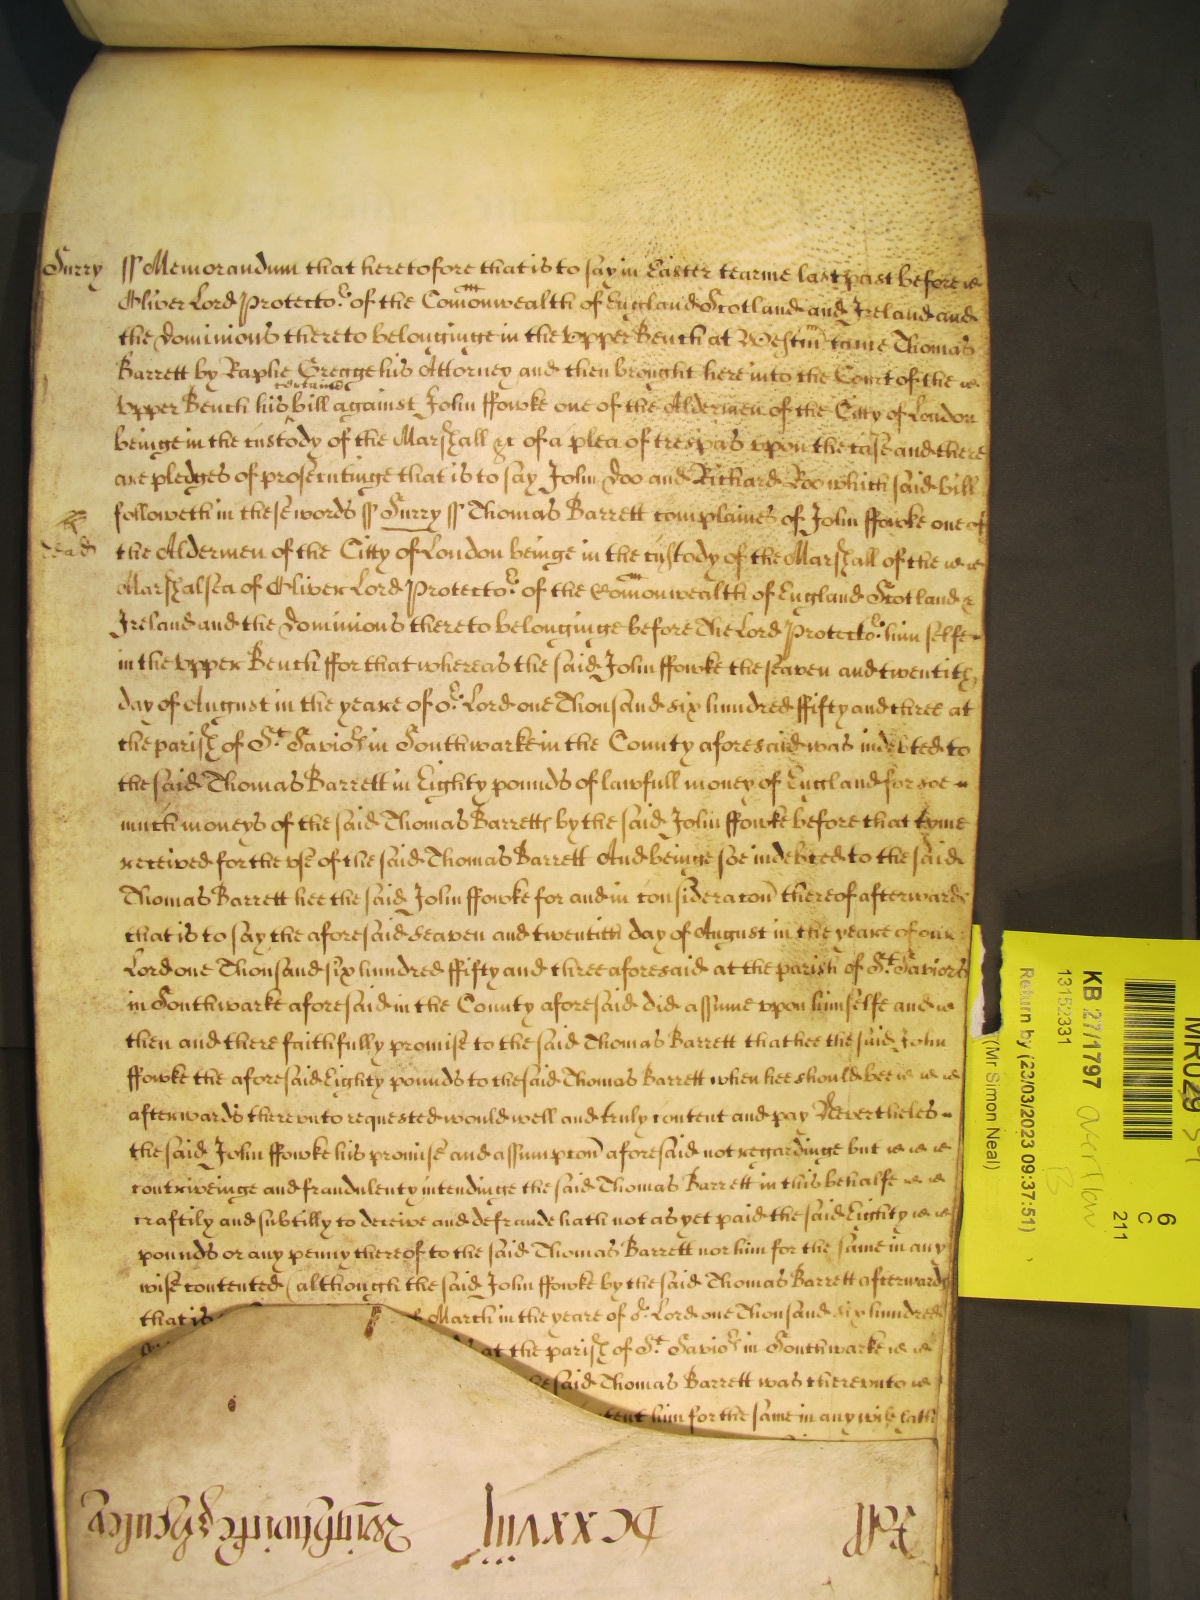 Surry ss Memorandum that heretofore that is to say in Easter tearme last past before
Oliver Lord Protector of the Comonwealth of England Scotland and Ireland and
the dominions thereto belonginge in the vpper Bench at Westm came Thomas
Barrett by Raphe Gregge his Attorney and then brought here into the Court of the
vpper Bench his certaine bill against John ffowke one of the Aldermen of the Citty of London
beinge in the custody of the Marshall &c of a plea of trespas vpon the case and there
are pledges of prosecutinge that is to say John Doo and Richard Roo which said bill
followeth in these words ss Surry ss Thomas Barrett complaines of John ffowke one of
the Aldermen of the Citty of London beinge in the custody of the Marshall of the
Marshalsea of Oliver Lord Protector of the Comonwealth of England Scotland &
Ireland and the dominions thereto belonginge before the Lord Protector himselfe
in the vpper Bench ffor that whereas the said John ffowke the seaven and twentith
day of August in the yeare of or Lord one Thousand six hundred ffifty and three at
the parish of St Saviors in Southwarke in the County aforesaid was indebted to
the said Thomas Barrett in Eighty pounds of lawfull money of England for soe
much moneys of the said Thomas Barrett by the said John ffowke before that tyme
received for the vse of the said Thomas Barrett And beinge soe indebted to the said
Thomas Barrett hee the said John ffowke for and in consideracon thereof afterwards
that is to say the aforesaid seaven and twentith day of August in the yeare of our
Lord one Thousand six hundred ffifty and three aforesaid at the parish of St Saviors
in Southwarke aforesaid in the County aforesaid did assume vpon himselfe and
then and there faithfully promise to the said Thomas Barrett that hee the said John
ffowke the aforesaid Eighty pounds to the said Thomas Barrett when hee should bee
afterwards therevnto requested would well and truly content and pay Nevertheles
the said John ffowke his promise and assumpcon aforesaid not regardinge but
contriveinge and fraudulenty intendinge the said Thomas Barrett in this behalfe
craftily and subtilly to deceive and defraude hath not as yet paid the said Eighty
pounds or any penny thereof to the said Thomas Barrett nor him for the same in any
wise contented (although the said John ffowke by the said Thomas Barrett afterwards
that is March in the yeare of or Lord one Thousand six hundred
at the parish of St Saviors in Southwarke
said Thomas Barrett was therevnto
him for the same in any wise hath
DCxxviij
Roll
6
C
211
KB 27/1797
overflow
B
13152331
Return by (23/03/2023 09:37:51)
(Mr Simon Neal)